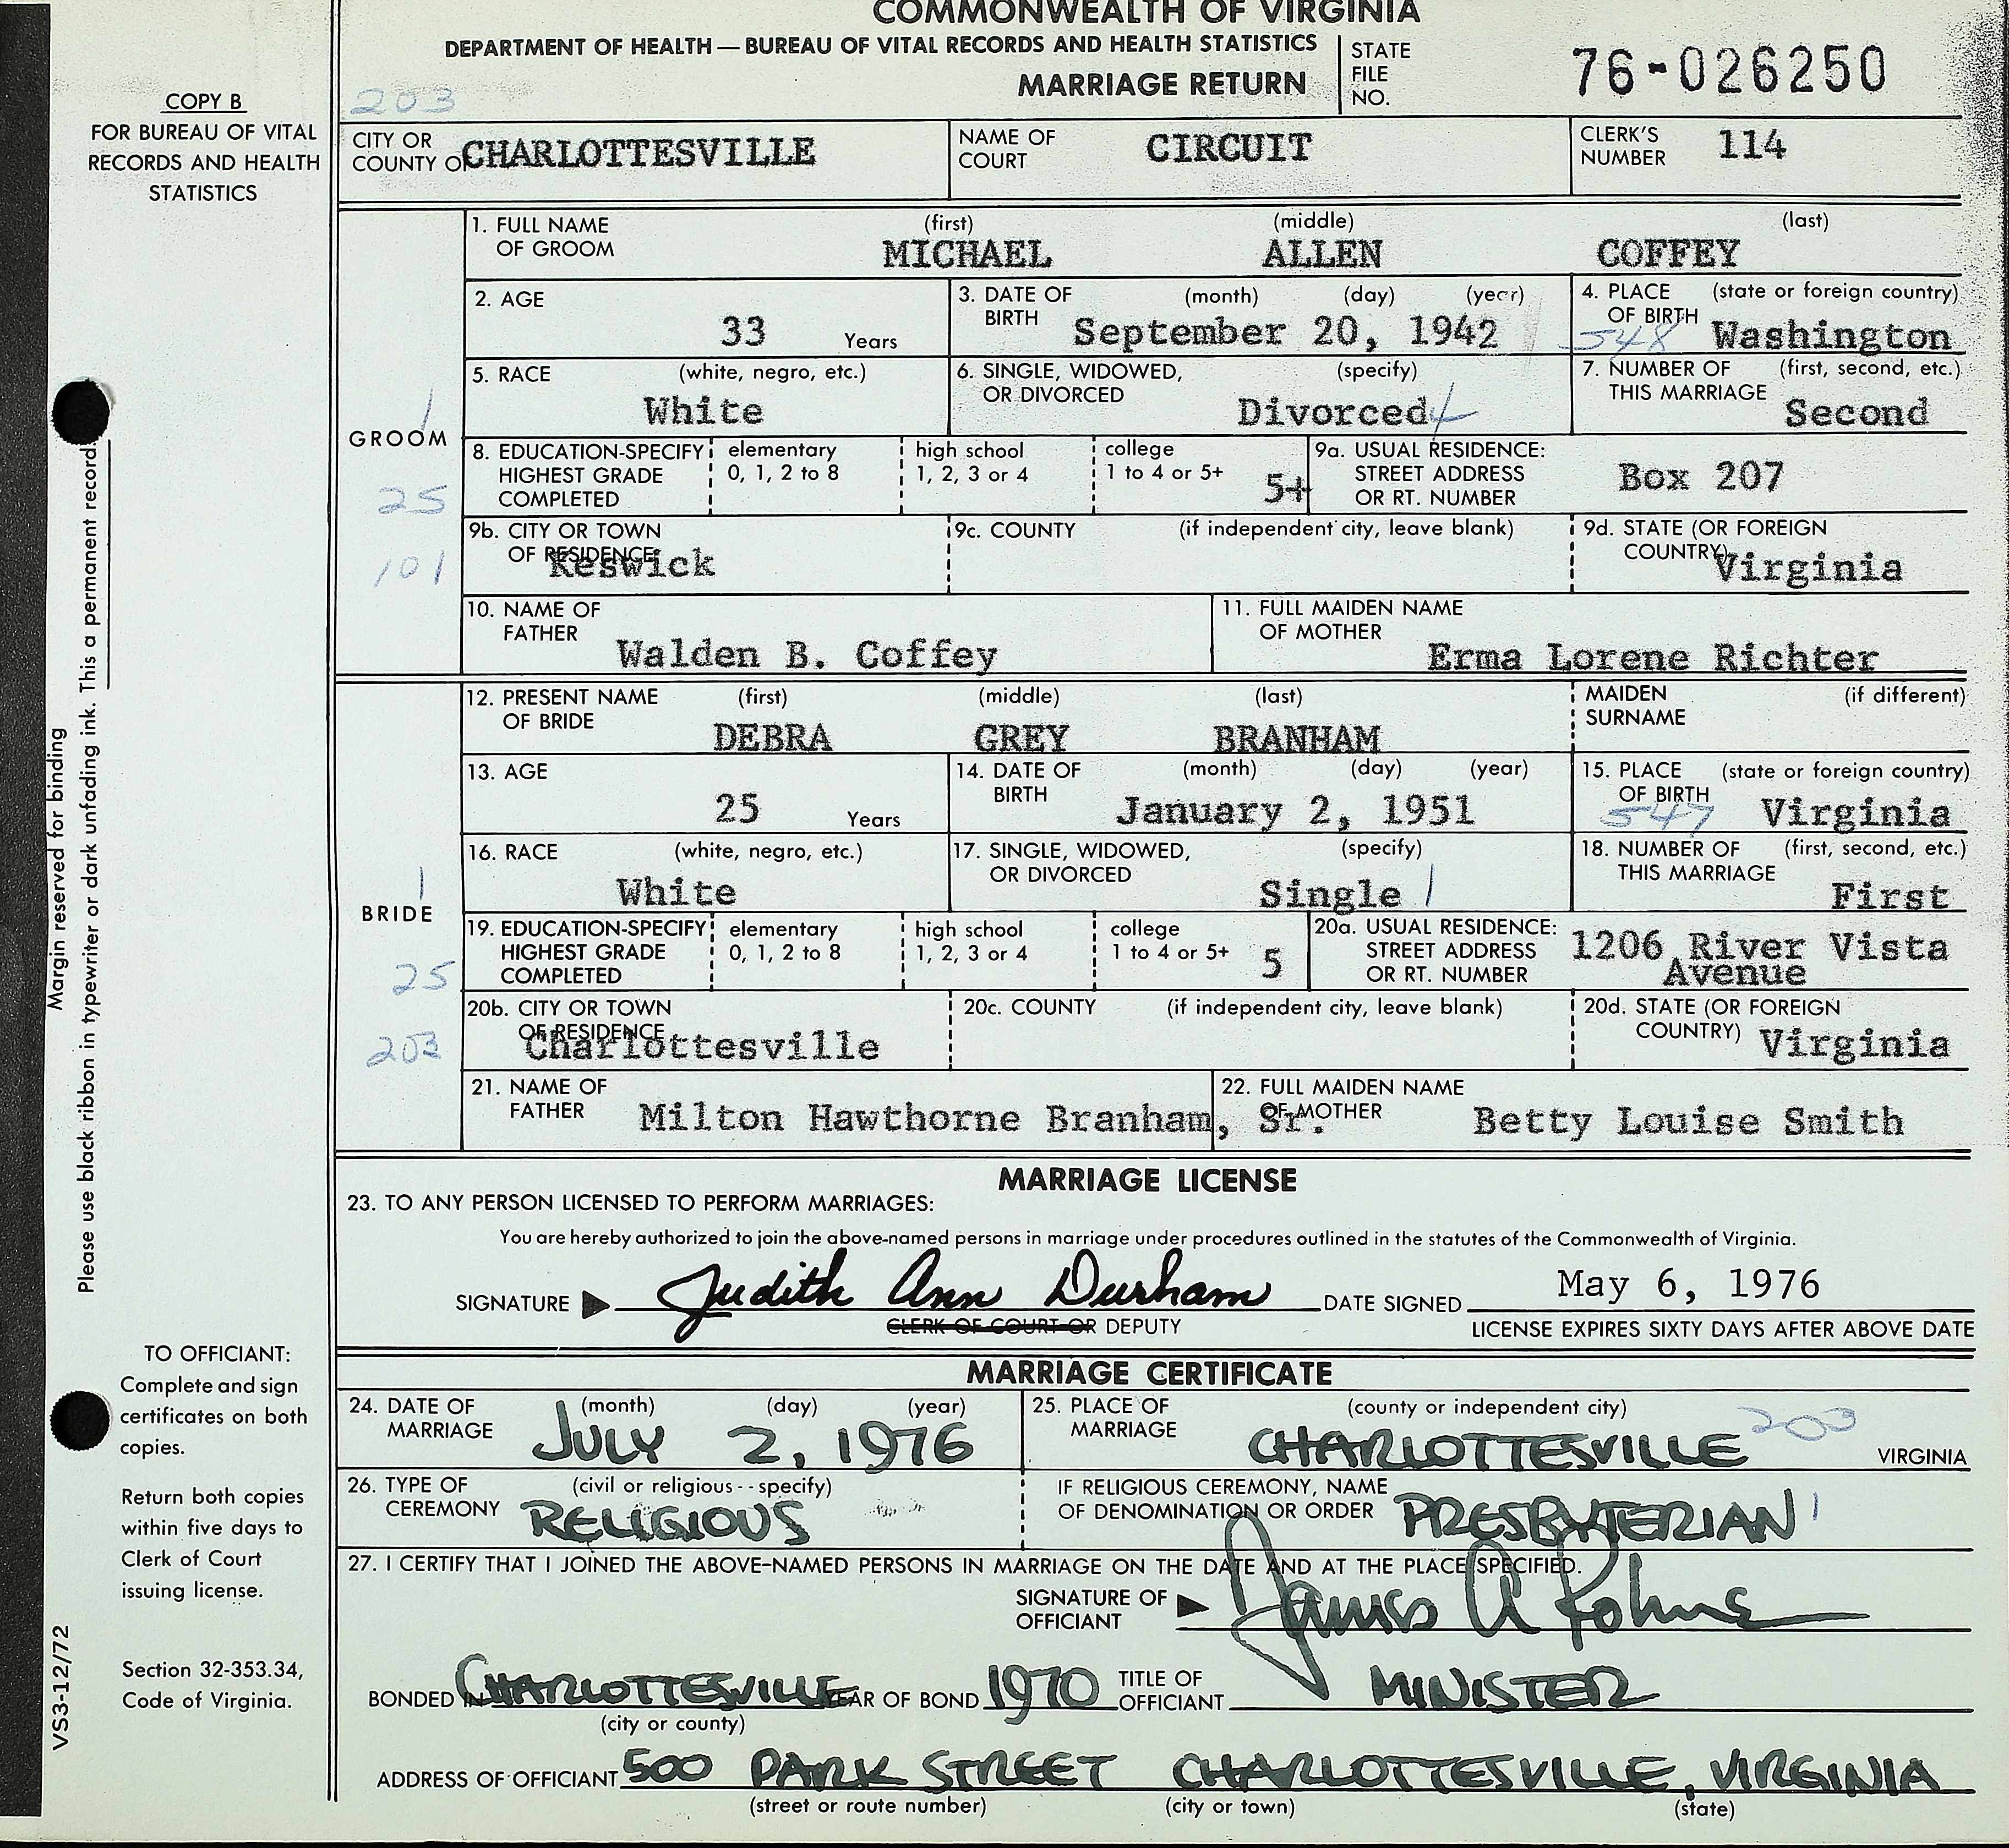 COMMONWEALTH OF VIRGINIA
DEPARTMENT OF HEALTH — BUREAU OF VITAL RECORDS AND HEALTH STATISTICS
MARRIAGE RETURN
STATE FILE NO. 76-026250
COPY B
FOR BUREAU OF VITAL
RECORDS AND HEALTH
STATISTICS
203
CITY OR COUNTY OF CHARLOTTESVILLE
NAME OF COURT CIRCUIT
CLERK'S NUMBER 114
GROOM
1
25
101
1. FULL NAME OF GROOM (first) MICHAEL (middle) ALLEN (last) COFFEY
2. AGE 33 Years
3. DATE OF BIRTH (month) (day) (year) September 20, 1942
4. PLACE OF BIRTH (state or foreign country) 548 Washington
5. RACE (white, negro, etc.) White
6. SINGLE, WIDOWED, OR DIVORCED (specify) Divorced 4
7. NUMBER OF THIS MARRIAGE (first, second, etc.) Second
8. EDUCATION-SPECIFY HIGHEST GRADE COMPLETED elementary 0, 1, 2 to 8 high school 1, 2, 3 or 4 college 1 to 4 or 5+ 5+
9a. USUAL RESIDENCE: STREET ADDRESS OR RT. NUMBER Box 207
9b. CITY OR TOWN OF RESIDENCE Keswick
9c. COUNTY (if independent city, leave blank)
9d. STATE (OR FOREIGN COUNTRY) Virginia
10. NAME OF FATHER Walden B. Coffey
11. FULL MAIDEN NAME OF MOTHER Erma Lorene Richter
BRIDE
1
25
203
12. PRESENT NAME OF BRIDE (first) DEBRA (middle) GREY (last) BRANHAM
MAIDEN SURNAME (if different)
13. AGE 25 Years
14. DATE OF BIRTH (month) (day) (year) January 2, 1951
15. PLACE OF BIRTH (state or foreign country) 547 Virginia
16. RACE (white, negro, etc.) White
17. SINGLE, WIDOWED, OR DIVORCED (specify) Single 1
18. NUMBER OF THIS MARRIAGE (first, second, etc.) First
19. EDUCATION-SPECIFY HIGHEST GRADE COMPLETED elementary 0, 1, 2 to 8 high school 1, 2, 3 or 4 college 1 to 4 or 5+ 5
20a. USUAL RESIDENCE: STREET ADDRESS OR RT. NUMBER 1206 River Vista Avenue
20b. CITY OR TOWN OF RESIDENCE Charlottesville
20c. COUNTY (if independent city, leave blank)
20d. STATE (OR FOREIGN COUNTRY) Virginia
21. NAME OF FATHER Milton Hawthorne Branham, Sr.
22. FULL MAIDEN NAME OF MOTHER Betty Louise Smith
MARRIAGE LICENSE
23. TO ANY PERSON LICENSED TO PERFORM MARRIAGES:
You are hereby authorized to join the above-named persons in marriage under procedures outlined in the statutes of the Commonwealth of Virginia.
SIGNATURE Judith Ann Durham DATE SIGNED May 6, 1976
CLERK OF COURT OR DEPUTY
LICENSE EXPIRES SIXTY DAYS AFTER ABOVE DATE
MARRIAGE CERTIFICATE
24. DATE OF MARRIAGE (month) (day) (year) JULY 2, 1976
25. PLACE OF MARRIAGE (county or independent city) CHARLOTTESVILLE 203 VIRGINIA
26. TYPE OF CEREMONY (civil or religious - - specify) RELIGIOUS
IF RELIGIOUS CEREMONY, NAME OF DENOMINATION OR ORDER PRESBYTERIAN 1
27. I CERTIFY THAT I JOINED THE ABOVE-NAMED PERSONS IN MARRIAGE ON THE DATE AND AT THE PLACE SPECIFIED.
SIGNATURE OF OFFICIANT James A
BONDED IN CHARLOTTESVILLE YEAR OF BOND 1970 TITLE OF OFFICIANT MINISTER
(city or county)
ADDRESS OF OFFICIANT 500 PARK STREET CHARLOTTESVILLE, VIRGINIA
(street or route number) (city or town) (state)
Margin reserved for binding
Please use black ribbon in typewriter or dark unfading ink. This a permanent record
TO OFFICIANT:
Complete and sign
certificates on both
copies.
Return both copies
within five days to
Clerk of Court
issuing license.
Section 32-353.34,
Code of Virginia.
VS3-12/72